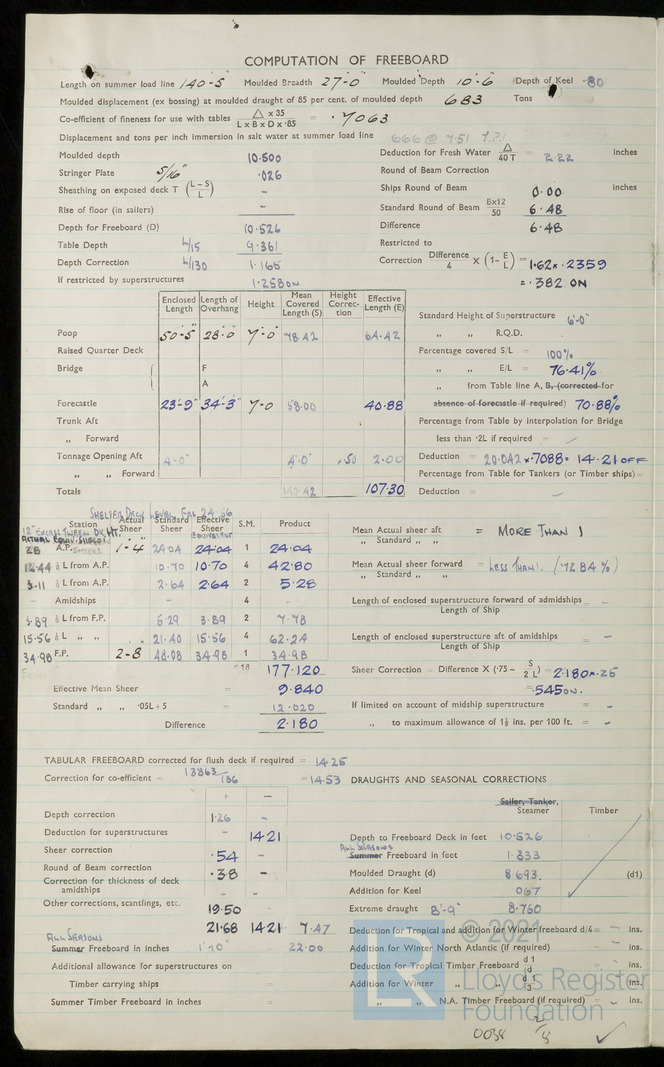 COMPUTATION OF FREEBOARD
Length on summer load line 140-5" Moulded Breadth 27-0" Moulded Depth 10-6" Depth of Keel -80
Moulded displacement (ex bossing) at moulded draught of 85 per cent. of moulded depth 683 Tons
Co-efficient of fineness for use with tables △ x 35 / L x B x D x ·85 = ·7063
Displacement and tons per inch immersion in salt water at summer load line 666 @ 7.51 T.P.I
Moulded depth 10.500 Deduction for Fresh Water △ / 40 T = 2.22 inches
Stringer Plate 5/16" ·026 Round of Beam Correction
Sheathing on exposed deck T (L-S / L) - Ships Round of Beam 0.00 inches
Rise of floor (in sailers) - Standard Round of Beam Bx12 / 50 6.48
Depth for Freeboard (D) 10.526 Difference 6.48
Table Depth L/15 9.361 Restricted to
Depth Correction L/130 1.165 Correction Difference / 4 X (1- E / L) = 1.62 x .2359
If restricted by superstructures 1.258 ON = .382 ON
Enclosed Length Length of Overhang Height Mean Covered Length (S) Height Correc-tion Effective Length (E)
Standard Height of Superstructure 6'-0"
Poop 50-5" 28-0" 7-0" 78.42 64.42 " " R.Q.D.
Raised Quarter Deck Percentage covered S/L = 100%
Bridge F " E/L = 76.41%
A " from Table line A, B, (corrected for
Forecastle 23-9" 34-3" 7-0 58.00 40.88 absence of forecastle if required) 70.88%
Trunk Aft Percentage from Table by interpolation for Bridge
" Forward less than ·2L if required =
Tonnage Opening Aft 4-0" 4-0" x 50 2.00 Deduction = 20.042 x .7088 = 14.21 OFF
" " Forward Percentage from Table for Tankers (or Timber ships) =
Totals 140.42 107.30 Deduction = -
SHELTER DECK LEVEL
12" EXCESS TWEEN DK HT.
Station Actual Sheer Standard Sheer Effective Sheer S.M. Product
28 A.P. 1-4 24.04 24.04 1 24.04 Mean Actual sheer aft / " Standard " " = MORE THAN 1
12.44 ⅙ L from A.P. 10.70 10.70 4 42.80 Mean Actual sheer forward / " Standard " " = LESS THAN 1. (72.84%)
3.11 ⅓ L from A.P. 2.64 2.64 2 5.28
Amidships - - 4 - Length of enclosed superstructure forward of admidships / Length of Ship -
3.89 ⅓ L from F.P. 5.29 3.89 2 7.78
15.56 ⅙ L " " 21.40 15.56 4 62.24 Length of enclosed superstructure aft of amidships / Length of Ship -
34.98 F.P. 2-8 48.08 34.98 1 34.98
18 177.120 Sheer Correction = Difference X (·75 - S / 2 L) = 2.180 x .25
Effective Mean Sheer = 9.840 = .545 ON.
Standard " " ·05L+5 = 12.020 If limited on account of midship superstructure = -
Difference 2.180 " to maximum allowance of 1½ ins. per 100 ft. = -
TABULAR FREEBOARD corrected for flush deck if required = 14.25
Correction for co-efficient = 1.3863 / 1.36 = 14.53 DRAUGHTS AND SEASONAL CORRECTIONS
+ -
Sailer, Tanker, Steamer Timber
Depth correction 1.26 -
Deduction for superstructures - 14.21 Depth to Freeboard Deck in feet 10.526
Sheer correction .54 - ALL SEASONS Summer Freeboard in feet 1.833
Round of Beam correction .38 - Moulded Draught (d) 8.693 (d1)
Correction for thickness of deck amidships - - Addition for Keel 067
Other corrections, scantlings, etc. 19.50 Extreme draught 8'-9" 8.760
21.68 14.21 7.47 Deduction for Tropical and addition for Winter freeboard d/4 = - ins.
ALL SEASONS
Summer Freeboard in inches 1'10" 22.00 Addition for Winter North Atlantic (if required) = - ins.
Additional allowance for superstructures on Deduction for Tropical Timber Freeboard d1 / d = - ins.
Timber carrying ships = Addition for Winter " " d1 / 3 = - ins.
Summer Timber Freeboard in inches = " " N.A. Timber Freeboard (if required) = - ins.
© 2021
LR
Lloyd's Register
Foundation